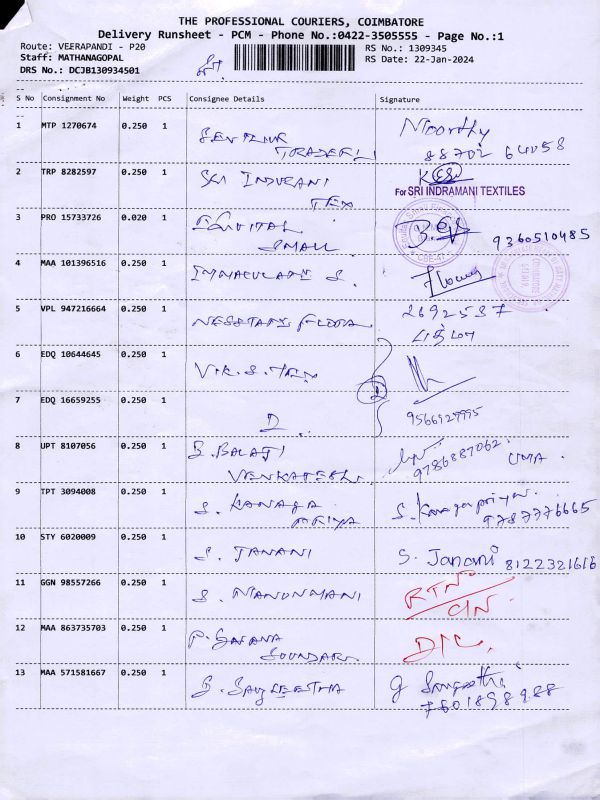 THE PROFESSIONAL COURIERS, COIMBATORE
Delivery Runsheet - PCM - Phone No.:0422-3505555 - Page No.:1
Route: VEERAPANDI - P20
RS No.: 1309345
Staff: MATHANAGOPAL
RS Date: 22-Jan-2024
DRS No.: DCJB130934501
S No Consignment No Weight PCS Consignee Details Signature
1 MTP 1270674 0.250 1 Moorthy
TRADERS 88702 64058
2 TRP 8282597 0.250 1 SRI INDURANI
TEX
For SRI INDRAMANI TEXTILES
3 PRO 15733726 0.020 1 EQUITAL
SMALL 9360510485
CBE-41
4 MAA 101396516 0.250 1 IMMACULATE S.
5 VPL 947216664 0.250 1 2692537
பத்மா
6 EDQ 10644645 0.250 1 V.K.S. TEX
7 EDQ 16659255 0.250 1 D
9566127995
8 UPT 8107056 0.250 1 B. BALAJI
VENKATESH. 9786887062. UMA
9 TPT 3094008 0.250 1 S. KANAGA S. Kanagapriya.
PRIYA 9787776665
10 STY 6020009 0.250 1 S. JANANI S. Janani 8122321616
11 GGN 98557266 0.250 1 S. MANONMANI RTN
C/N.
12 MAA 863735703 0.250 1 P. SARANA
SOUNDARI D/L.
13 MAA 571581667 0.250 1 S. SANGEETHA g Sangeetha
7601898988